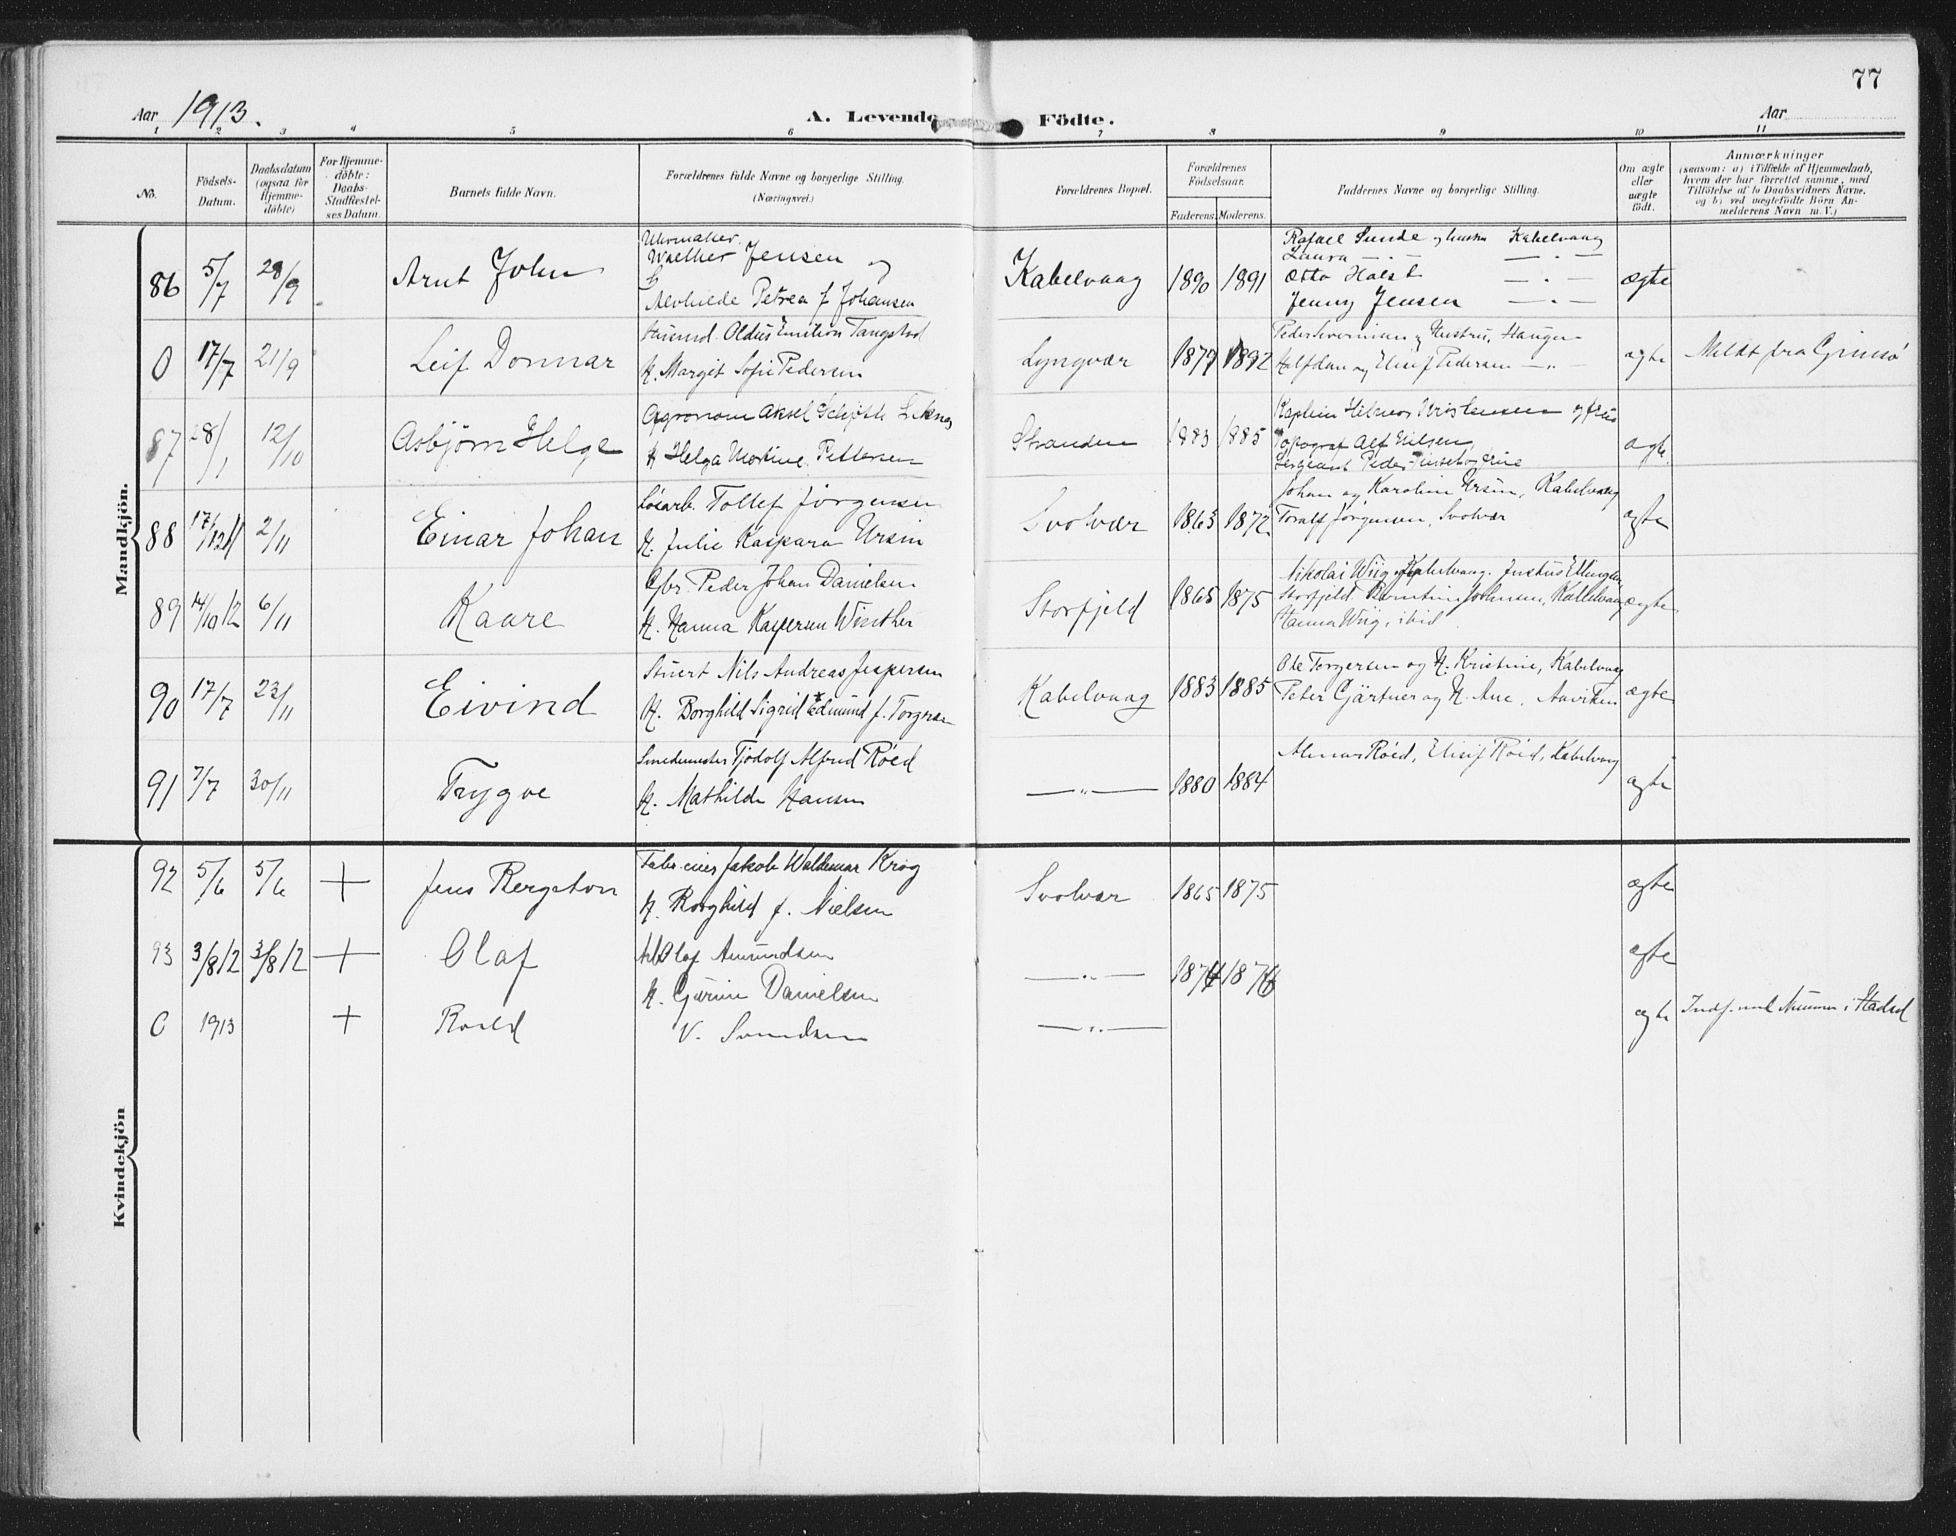 77
Aar 1913.
A. Levende Födte.
Aar
1 2 3 4 5 6 7 8 9 10 11
No.
Födsels-Datum.
Daabsdatum (ogsaa for Hjemme-döbte)
For Hjemme-döbte: Daabs-Stadfæstel-ses Datum.
Barnets fulde Navn.
Forældrenes fulde Navne og borgerlige Stilling. (Næringsvei.)
Forældrenes Bopæl.
Forældrenes Födselsaar.
Faderens. Moderens.
Faddernes Navne og borgerlige Stilling.
Om ægte eller uægte födt.
Anmærkninger
(saasom: a) i Tilfælde af Hjemmedaab, hvem der har forrettet samme, med Tilföielse af to Daabsvidners Navne, og b) ved uægtefödte Börn An-melderens Navn m. V.)
Mandkjön.
86 5/7 28/9 Arnt John
Uhrmaker Walther Jensen og
Alvhilde Petrea f Johansen
Kabelvaag 1890 1891
Rafael Sunde og hustru Kabelvaag
Laura
Otto Holst
Jenny Jensen
ægte
0 17/7 21/9 Leif Donnar
Oldus Emition Tangstad
H. Margit Sofie Pedersen
Lyngvær 1879 1892
Hustru, Haugen
Halfdan og Elisif Pedersen
ægte Meldt fra Gimsö
87 28/1 12/10 Asbjörn Helge
Agronom Aksel Schjøtt Leknes
H Helga Martine Pettersen
Stranden 1883 1885
Kaptein Hilmar Kristensen og frue
Topograf Alf Nilsen
Sergeant Peder
ægte
88 17/12 11 2/11 Einar Johan
Løsarb. Tollef Jørgensen
H. Julie Kaspara Ursin
Svolvær 1863 1872
Johan og Karoline Ursin, Kabelvaag
Toralf Jørgensen, Svolvær
ægte
89 14/10 12 6/11 Kaare
Gbr. Peder Johan Danielsen
H. Hanna Kaspersen Winther
Storfjeld 1865 1875
Nikolai Wiig, Kabelvaag. Justus Ellingsen
Storfjeld Johnsen, Kabelvaag
Hanna Wiig, ibid
ægte
90 17/7 23/11 Eivind
Stuert Nils Andreas Jespersen
H. Borghild Sigrid Edmund f. Torgersen
Kabelvaag 1883 1885
Ole Torgersen og H. Kristine, Kabelvaag
Peter Gjärtner og H. Ane, Aaviken
ægte
91 7/7 30/11 Trygve
Smedemester Tjodolf Alfred Röed
H. Mathilde Hansen
—„— 1880 1884
Röed, Elisif Röed, Kabelvaag
ægte
Kvindekjön
92 5/6 5/6 + Jens Bergston
Jakob Waldemar Krog
H. Borghild f. Nielsen
Svolvær 1865 1875
ægte
93 3/8 12 3/8 12 + Olaf
Arb Olaf Amundsen
H. Gurine Danielsen
—„— 1874 1876
ægte
0 1913 + Roald
V. Svendsen
—„—
ægte Indf. med Nummer i Hadsel